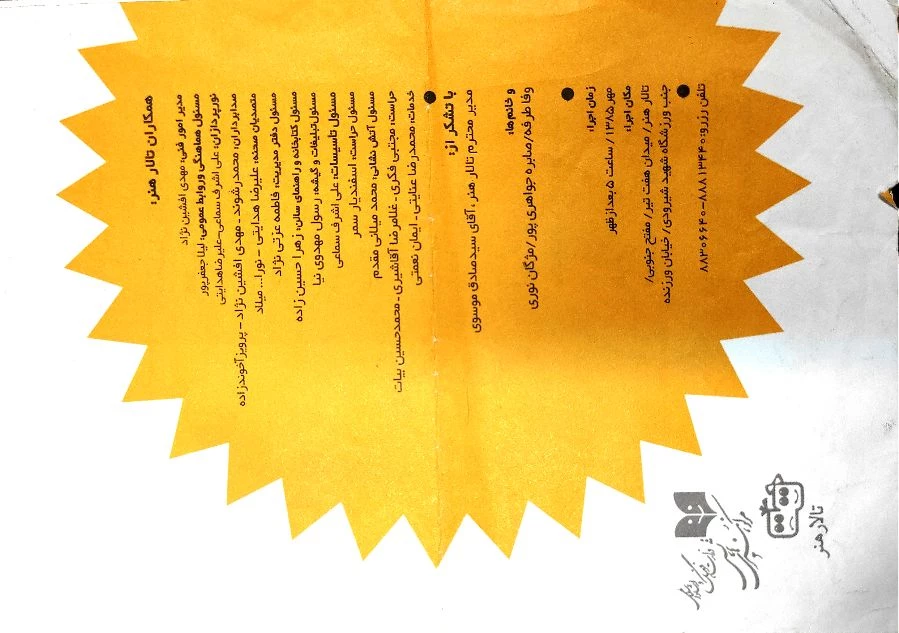 همکاران تالار هنر:
مدیر امور فنی: مهدی افشین نژاد
مسئول هماهنگی و روابط عمومی: لیلا جعفرپور
نورپردازان: علی اشرف سماعی-علیرضاهدایتی
صدابرداران: محمدرشوند - مهدی افشین نژاد - پرویز آخوندزاده
متصدیان صحنه: علیرضا هدایتی - نورا... میلاد
مسئول دفتر مدیریت: فاطمه عزتی نژاد
مسئول کتابخانه و راهنمای سالن: زهرا حسین زاده
مسئول تبلیغات و گیشه: رسول مهدوی نیا
مسئول تاسیسات: علی اشرف سماعی
مسئول حراست: اسفندیار سمر
مسئول آتش نشانی: محمد میلانی مقدم
حراست: مجتبی فکری - غلامرضا آقاشیری - محمدحسین بیات
خدمات: محمدرضا عنایتی - ایمان نعمتی
با تشکر از:
مدیر محترم تالار هنر ، آقای سیدصادق موسوی
و خانم‌ها:
وفا طرفه/صابره جواهری پور/مژگان نوری
زمان اجرا:
مهر ۱۳۸۵/ ساعت ۵ بعدازظهر
مکان اجرا:
تالار هنر/ میدان هفت تیر/ مفتح جنوبی/
جنب ورزشگاه شهید شیرودی/ خیابان ورزنده
تلفن رزرو: ۸۸۸۱۳۴۴۰-۸۸۳۰۶۶۴۰
تالار هنر